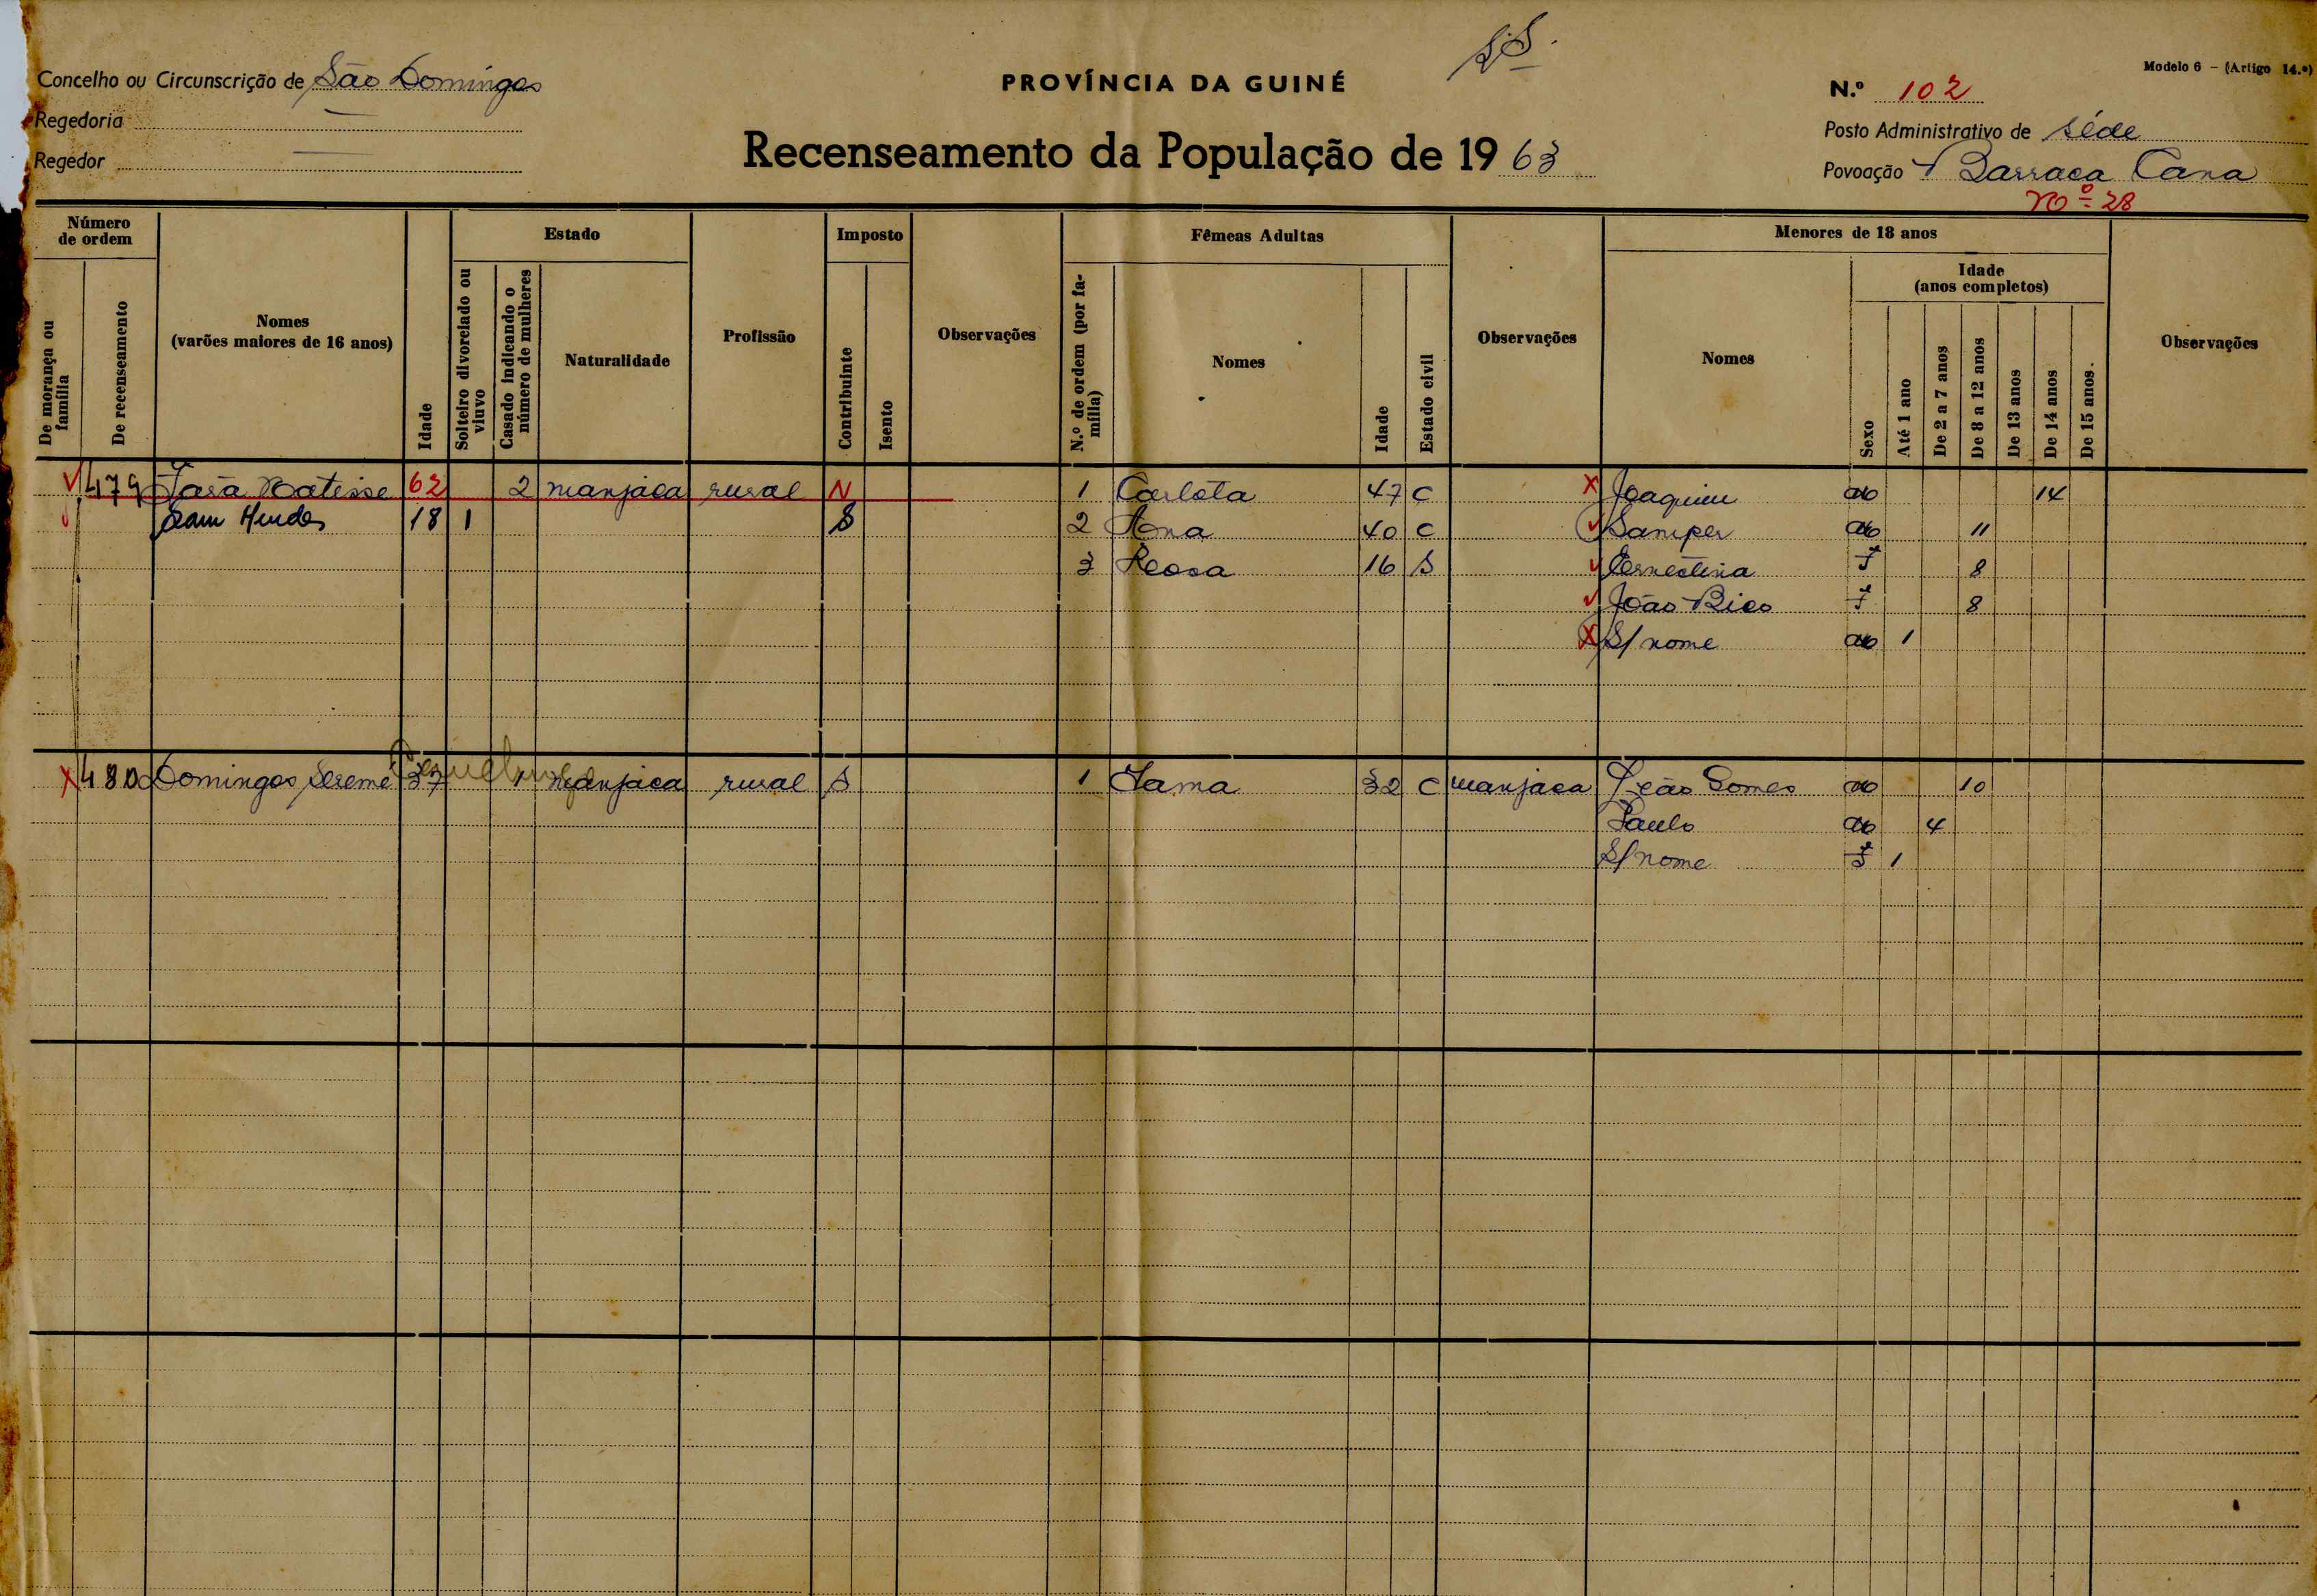 S.S.
Modelo 6 – (Artigo 14.º)
Concelho ou Circunscrição de São Domingos
PROVÍNCIA DA GUINÉ
N.º 102
Regedoria —
Posto Administrativo de séde
Regedor —
Recenseamento da População de 1963
Povoação Barraca Cana
Nº 28
Número de ordem
De morança ou família
De recenseamento
Nomes (varões maiores de 16 anos)
Idade
Estado
Solteiro divorciado ou viuvo
Casado indicando o número de mulheres
Naturalidade
Profissão
Imposto
Contribuinte
Isento
Observações
Fêmeas Adultas
N.º de ordem (por família)
Nomes
Idade
Estado civil
Observações
Menores de 18 anos
Nomes
Sexo
Idade (anos completos)
Até 1 ano
De 2 a 7 anos
De 8 a 12 anos
De 13 anos
De 14 anos
De 15 anos.
Observações
479 62 2 manjaca rural N 1 Carlota 47 C Joaquim m 14
Mendes 18 1 S 2 Ana 40 C Samper m 11
3 Rosa 16 S Ernestina F 8
João Bico F 8
S/ nome m 1
480 Domingos Sereme 37 1 manjaca rural S 1 Jama 32 C manjaca João Gomes m 10
Paulo m 4
S/ nome F 1